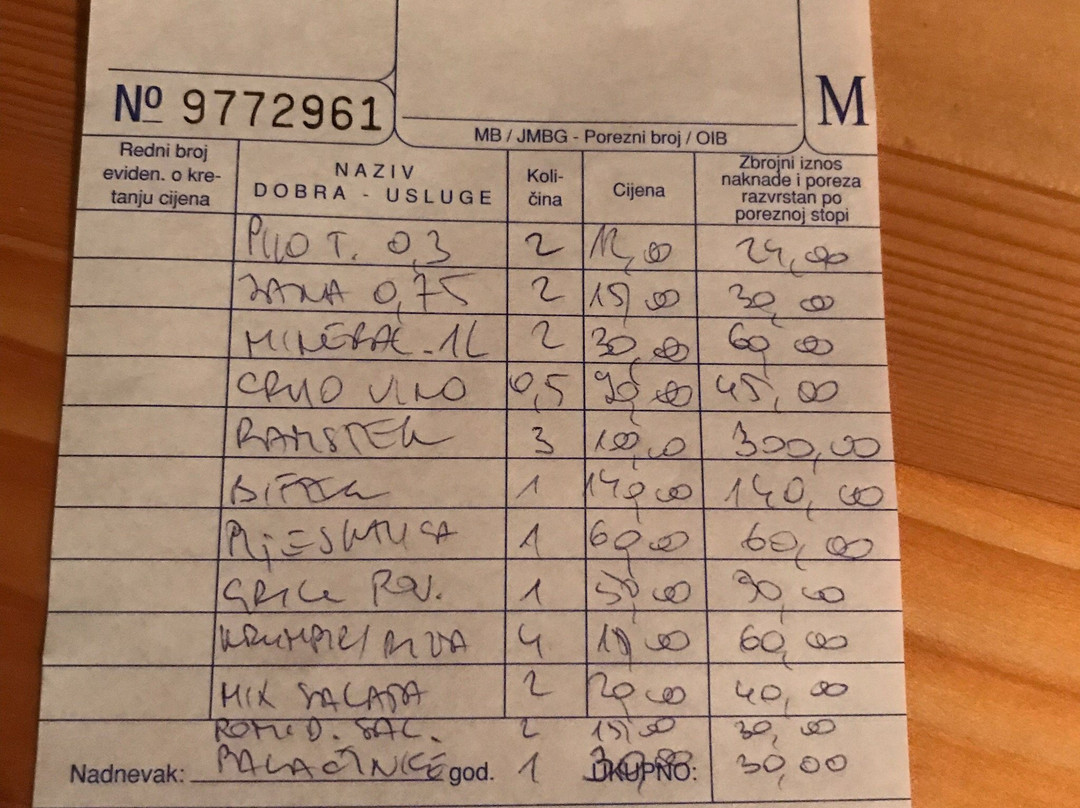 Nº 9772961
M
MB / JMBG - Porezni broj / OIB
Redni broj
eviden. o kre-
tanju cijena
NAZIV
DOBRA - USLUGE
Koli-
čina
Cijena
Zbrojni iznos
naknade i poreza
razvrstan po
poreznoj stopi
PIVO T. 0,3 2 12,00 24,00
JANA 0,75 2 15,00 30,00
MINERAL. 1L 2 30,00 60,00
CRNO VINO 0,5 90,00 45,00
RAMSTEK 3 100,00 300,00
BIFTEK 1 140,00 140,00
PLJESKAVICA 1 60,00 60,00
GRILL POV. 1 30,00 30,00
KRUMPIR/ 4 15,00 60,00
MIX SALATA 2 20,00 40,00
SAL. 2 15,00 30,00
PALAČINKE 1 30,00
Nadnevak: god. UKUPNO: